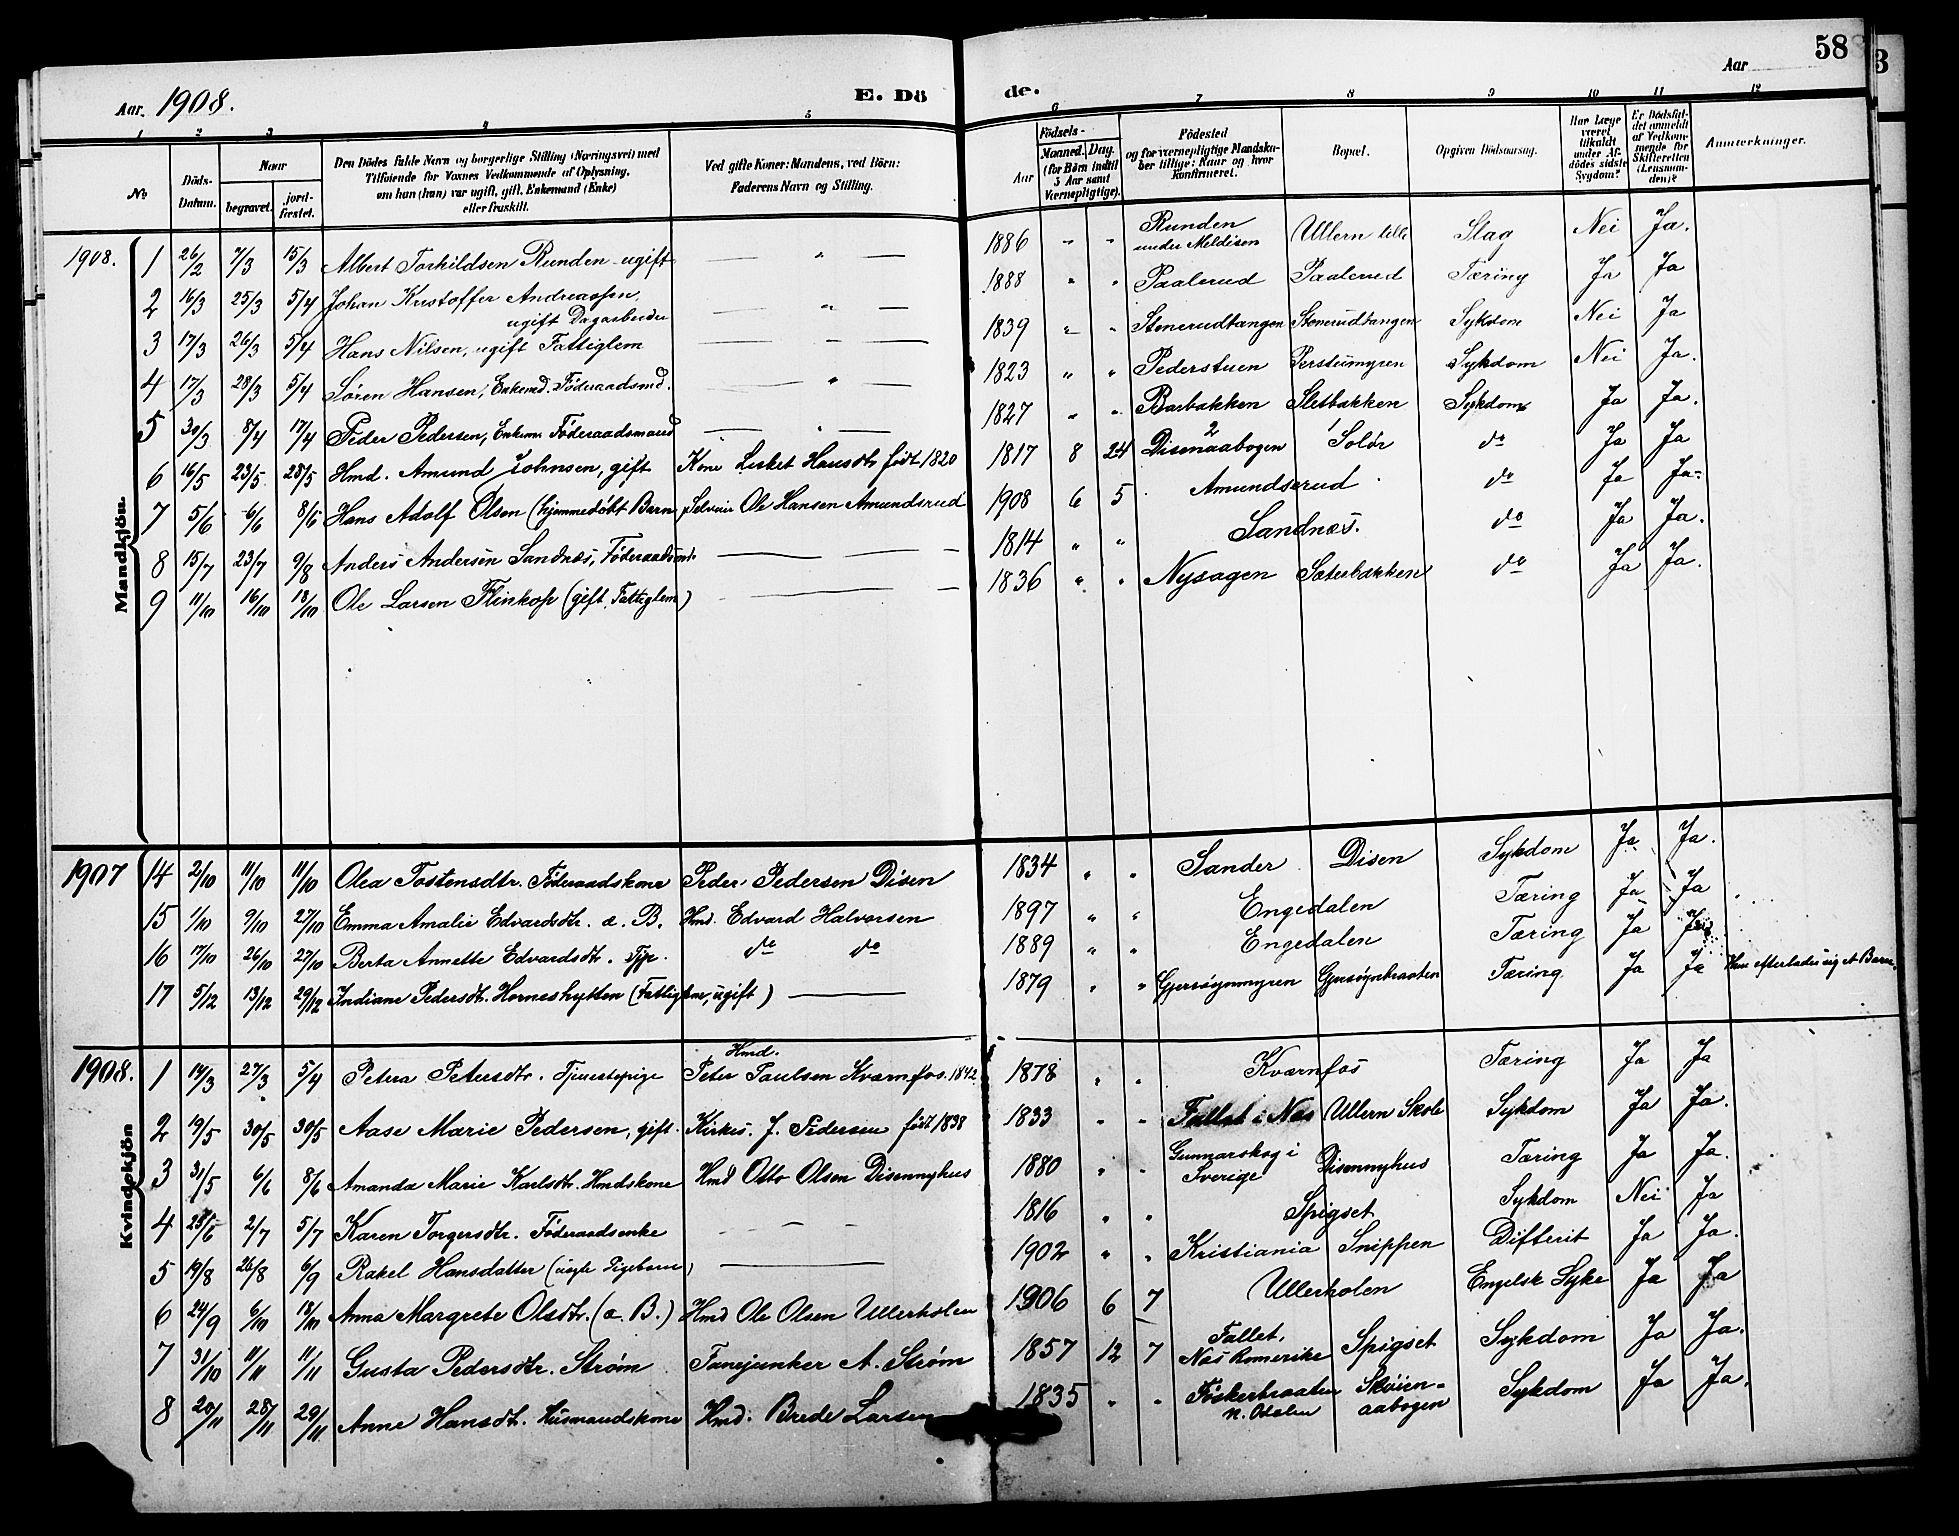 58
Aar. 1908. E. Dö de. Aar
1 2 3 4 5 6 7 8 9 10 11 12
No Döds-Datum. Naar begravet. jordfæstet. Den Dödes fulde Navn og borgerlige Stilling (Næringsvei) med Tilföiende for Voxnes Vedkommende af Oplysning, om han (hun) var ugift, gift, Enkemand (Enke) eller fraskilt. Ved gifte Koner: Mandens, ved Börn: Faderens Navn og Stilling. Födsels- Aar Maaned. Dag. (for Börn indtil 5 Aar samt Værnepligtige). Födested og for værnepligtige Mandskaber tillige: Naar og hvor konfirmeret. Bopæl. Opgiven Dödsaarsag. Har Læge været tilkaldt under Afdödes sidste Sygdom? Er Dödsfaldet anmeldt af Vedkommende for Skifteretten (Lensmanden)? Anmærkninger.
Mandkjön.
1908. 1 26/2 7/3 15/3 Albert Torkildsen Runden ugift — " — 1886 " " Runden under Meldisen Ullern lille Slag Nei Ja.
2 16/3 25/3 5/4 Johan Kristoffer Andreassen, ugift Dagarbeider — " — 1888 " " Paalerud Paalerud Tæring Ja Ja
3 17/3 26/3 5/4 Hans Nilsen, ugift Fattiglem — " — 1839 " " Stenerudtangen Stenerudtangen Sykdom Nei Ja
4 17/3 28/3 5/4 Søren Hansen, Enkemd. Föderaadsmd. — " — 1823 " " Pederstuen Perstumyren Sykdom Nei Ja.
5 30/3 8/4 17/4 Peder Pedersen, Enkem. Föderaadsmand — " — 1827 " " Barbakken Sletbakken Sykdom Ja Ja.
6 16/5 23/5 28/5 Hmd. Amund Johnsen, gift Kone Lisbet Hansdtr født 1820 1817 8 24 Disenaabogen 2 Solør 1 do Ja Ja
7 5/6 6/6 8/6 Hans Adolf Olsen (hjemmedøbt Barn) Selveier Ole Hansen Amundsrud 1908 6 5 Amundsrud do Ja Ja
8 15/7 23/7 9/8 Anders Andersen Sandnæs, Föderaadsmd. — — 1814 " " Sandnæs. do Ja Ja.
9 11/10 16/10 18/10 Ole Larsen Flinkop (gift, Fattiglem) — — 1836 " " Nysagen Sæterbakken do Ja Ja.
Kvindekjön
1907 14 2/10 11/10 11/10 Olea Tostensdtr. Föderaadskone Peder Pedersen Disen 1834 " " Sander Disen Sykdom Ja Ja.
15 1/10 9/10 27/10 Emma Amalie Edvardsdtr. æ. B. Hmd. Edvard Halvorsen 1897 " " Engedalen Tæring Ja Ja
16 17/10 26/10 27/10 Berta Annette Edvardsdtr. Tjp. do do 1889 " " Engedalen Tæring Ja Ja
17 5/12 13/12 29/12 Indiane Pedersdtr. Horneshytten (Fattiglem, ugift) — 1879 " " Gjersøynmyren Gjersøynbraaten Tæring Ja Ja Hun efterlader sig et Barn.
1908. 1 19/3 27/3 5/4 Petera Petersdtr. Tjenestepige Hmd. Peter Paulsen Kværnfos. 1842 1878 " " Kværnfos Tæring Ja Ja
2 19/5 30/5 30/5 Aase Marie Pedersen, gift. Kirkes. J. Pedersen født 1838 1833 " " Fallet i Næs Ullern Skole Sykdom Ja Ja.
3 31/5 6/6 8/6 Amanda Marie Karlsdtr. Hmdskone Hmd Otto Olsen Disennyhus 1880 " " Gunnarskog i Sverige Disennyhus Tæring Ja Ja.
4 25/6 2/7 5/7 Karen Torgersdtr. Föderaadsenke — 1816 " " Spigset Sykdom Nei Ja
5 19/8 26/8 6/9 Rakel Hansdatter (uegte Pigebarn) — 1902 " " Kristiania Snippen Difterit Ja Ja.
6 24/9 6/10 18/10 Anna Margrete Olsdtr. (æ. B.) Hmd Ole Olsen Ullerholen 1906 6 7 Ullerholen Engelsk Syke Ja Ja
7 31/10 11/11 11/11 Gusta Pedersdtr. Strøm Fanejunker A. Strøm 1857 12 7 Fallet, Næs Romerike Spigset Sykdom Ja Ja.
8 20/11 28/11 29/11 Anne Hansdtr. Husmandskone Hmd: Brede Larsen 1835 " " Föskerbraaten N. Odalen Skøienaabogen Sykdom Ja Ja.